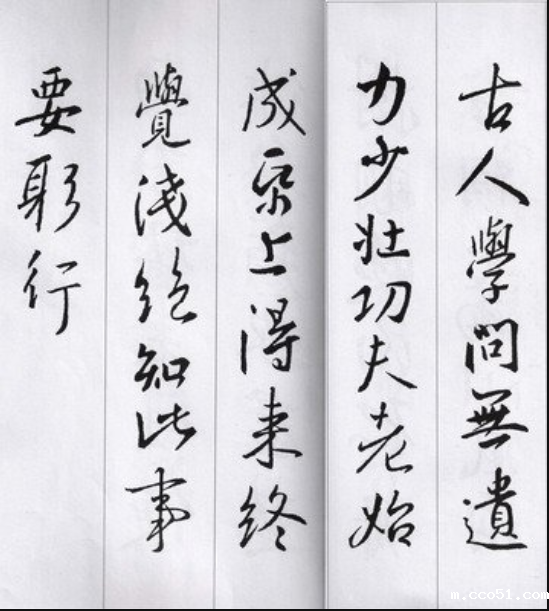 古人學問無遺
力少壯功夫老始
成帋上得来終
覺淺絕知此事
要躬行
m.cco51.com